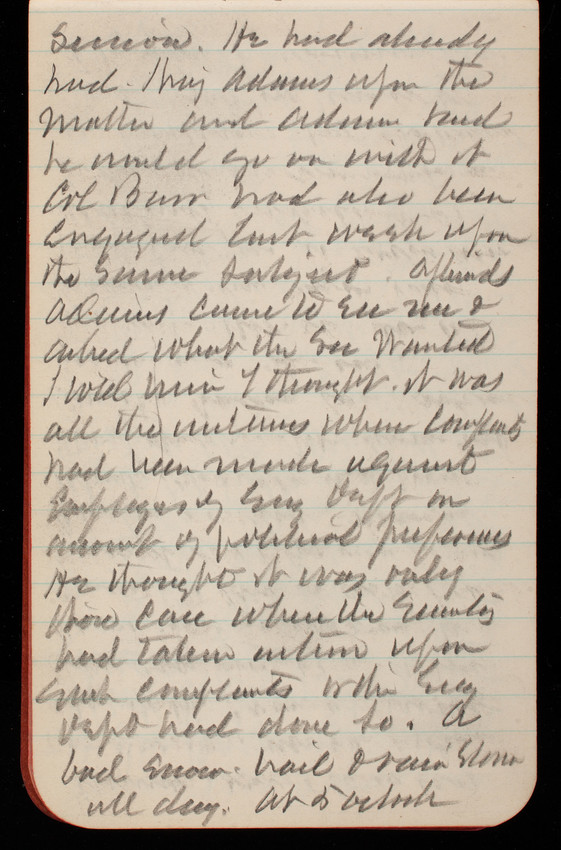 Session. He had already
had Maj Adams upon the
matter and Adams said
he would go on with it
Col Barr had also been
engaged last week upon
the same subject. Afterwds
Adams came to see me &
asked what the Sec wanted
I told him I thought it was
all the instances where complaints
had been made against
Employees of Engr Dept on
account of political preferences
He thought it was only
those cases where the Senators
had taken action upon
such complaints & the Engr
Dept had done so. A
bad snow hail & rain storm
all day. At 5 oclock